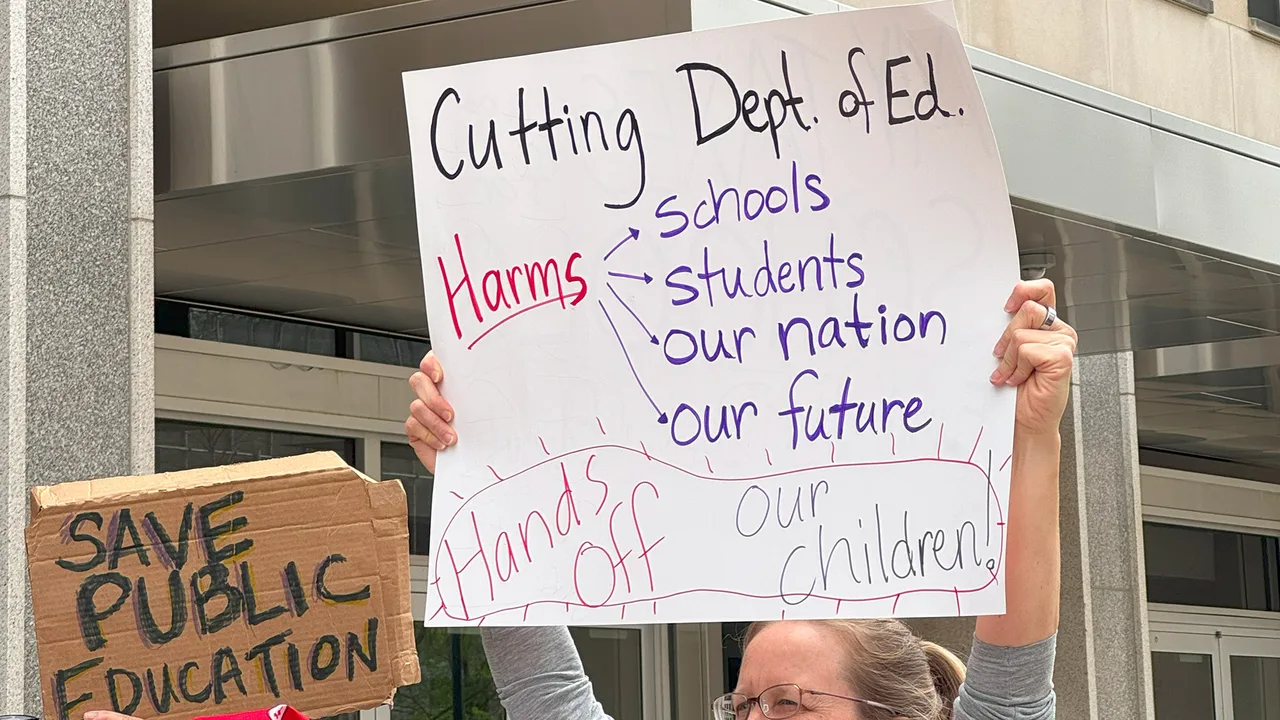 Cutting Dept. of Ed.
Harms
schools
students
our nation
our future
Hands off our children!
SAVE
PUBLIC
EDUCATION